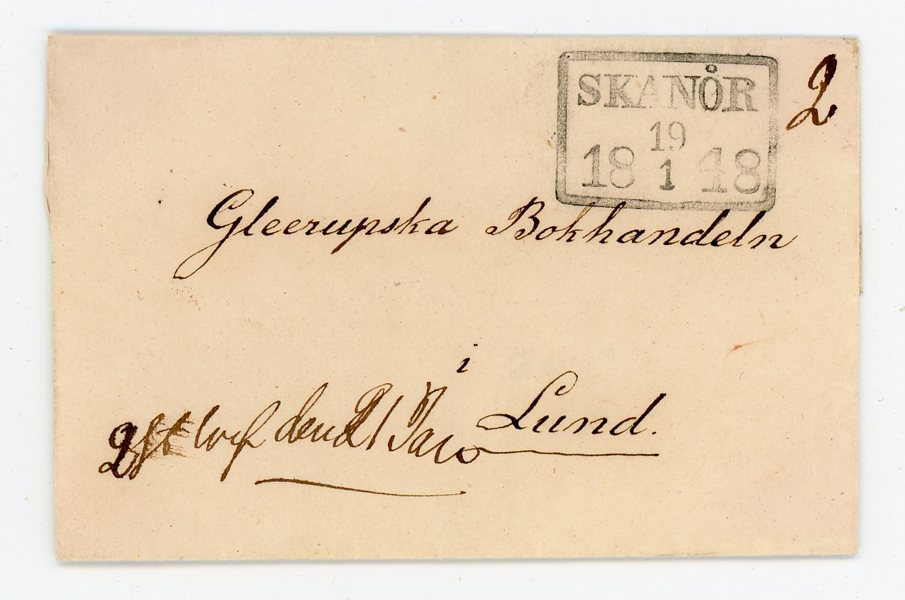 SKANÖR
19
18 1 48
2
Gleerupska Bokhandeln
i
Lund.
2 den 21